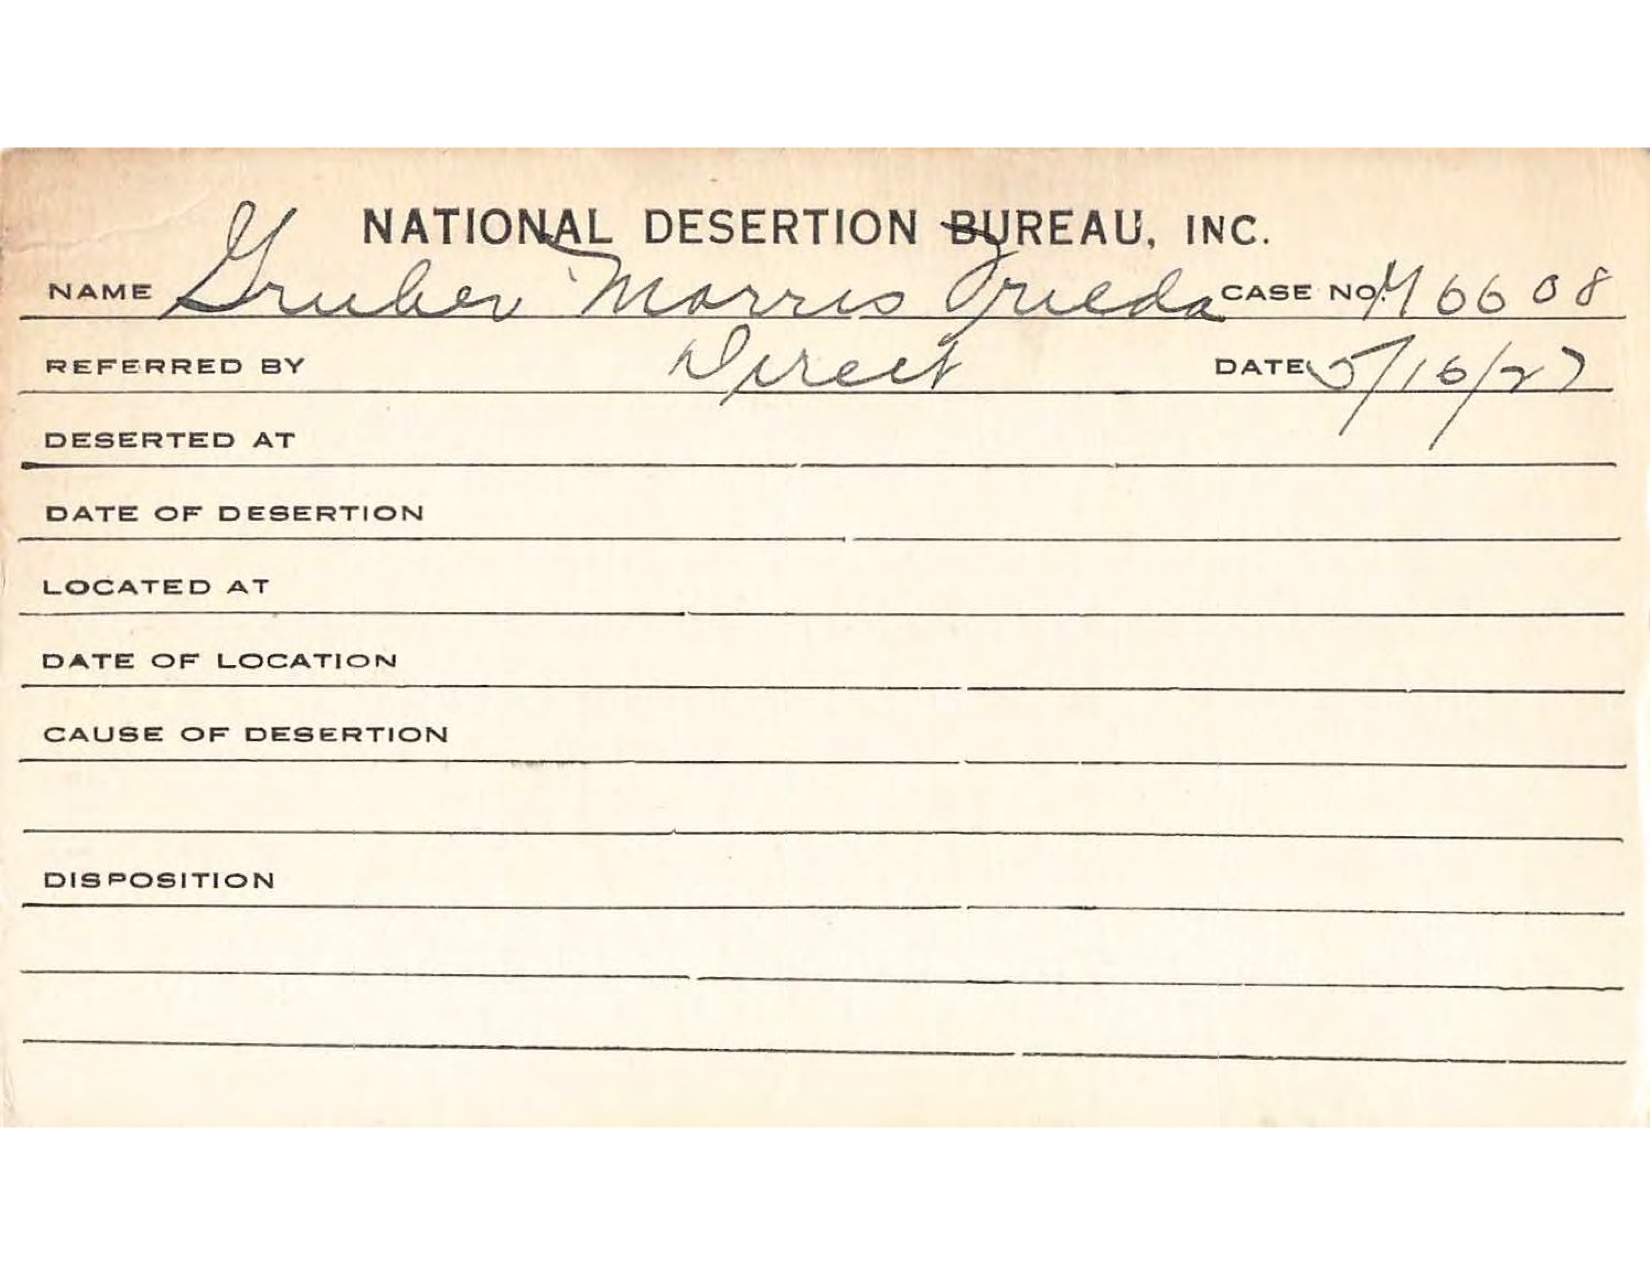 NATIONAL DESERTION BUREAU, INC.
NAME Gruber Morris Frieda CASE NO. M6608
REFERRED BY Direct DATE 5/16/27
DESERTED AT
DATE OF DESERTION
LOCATED AT
DATE OF LOCATION
CAUSE OF DESERTION
DISPOSITION